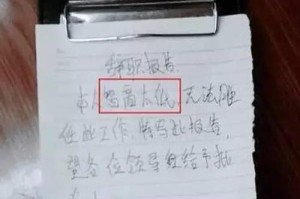 辞职报告
本人智商太低，无法胜
任此工作，特写此报告，
望各位领导给予批